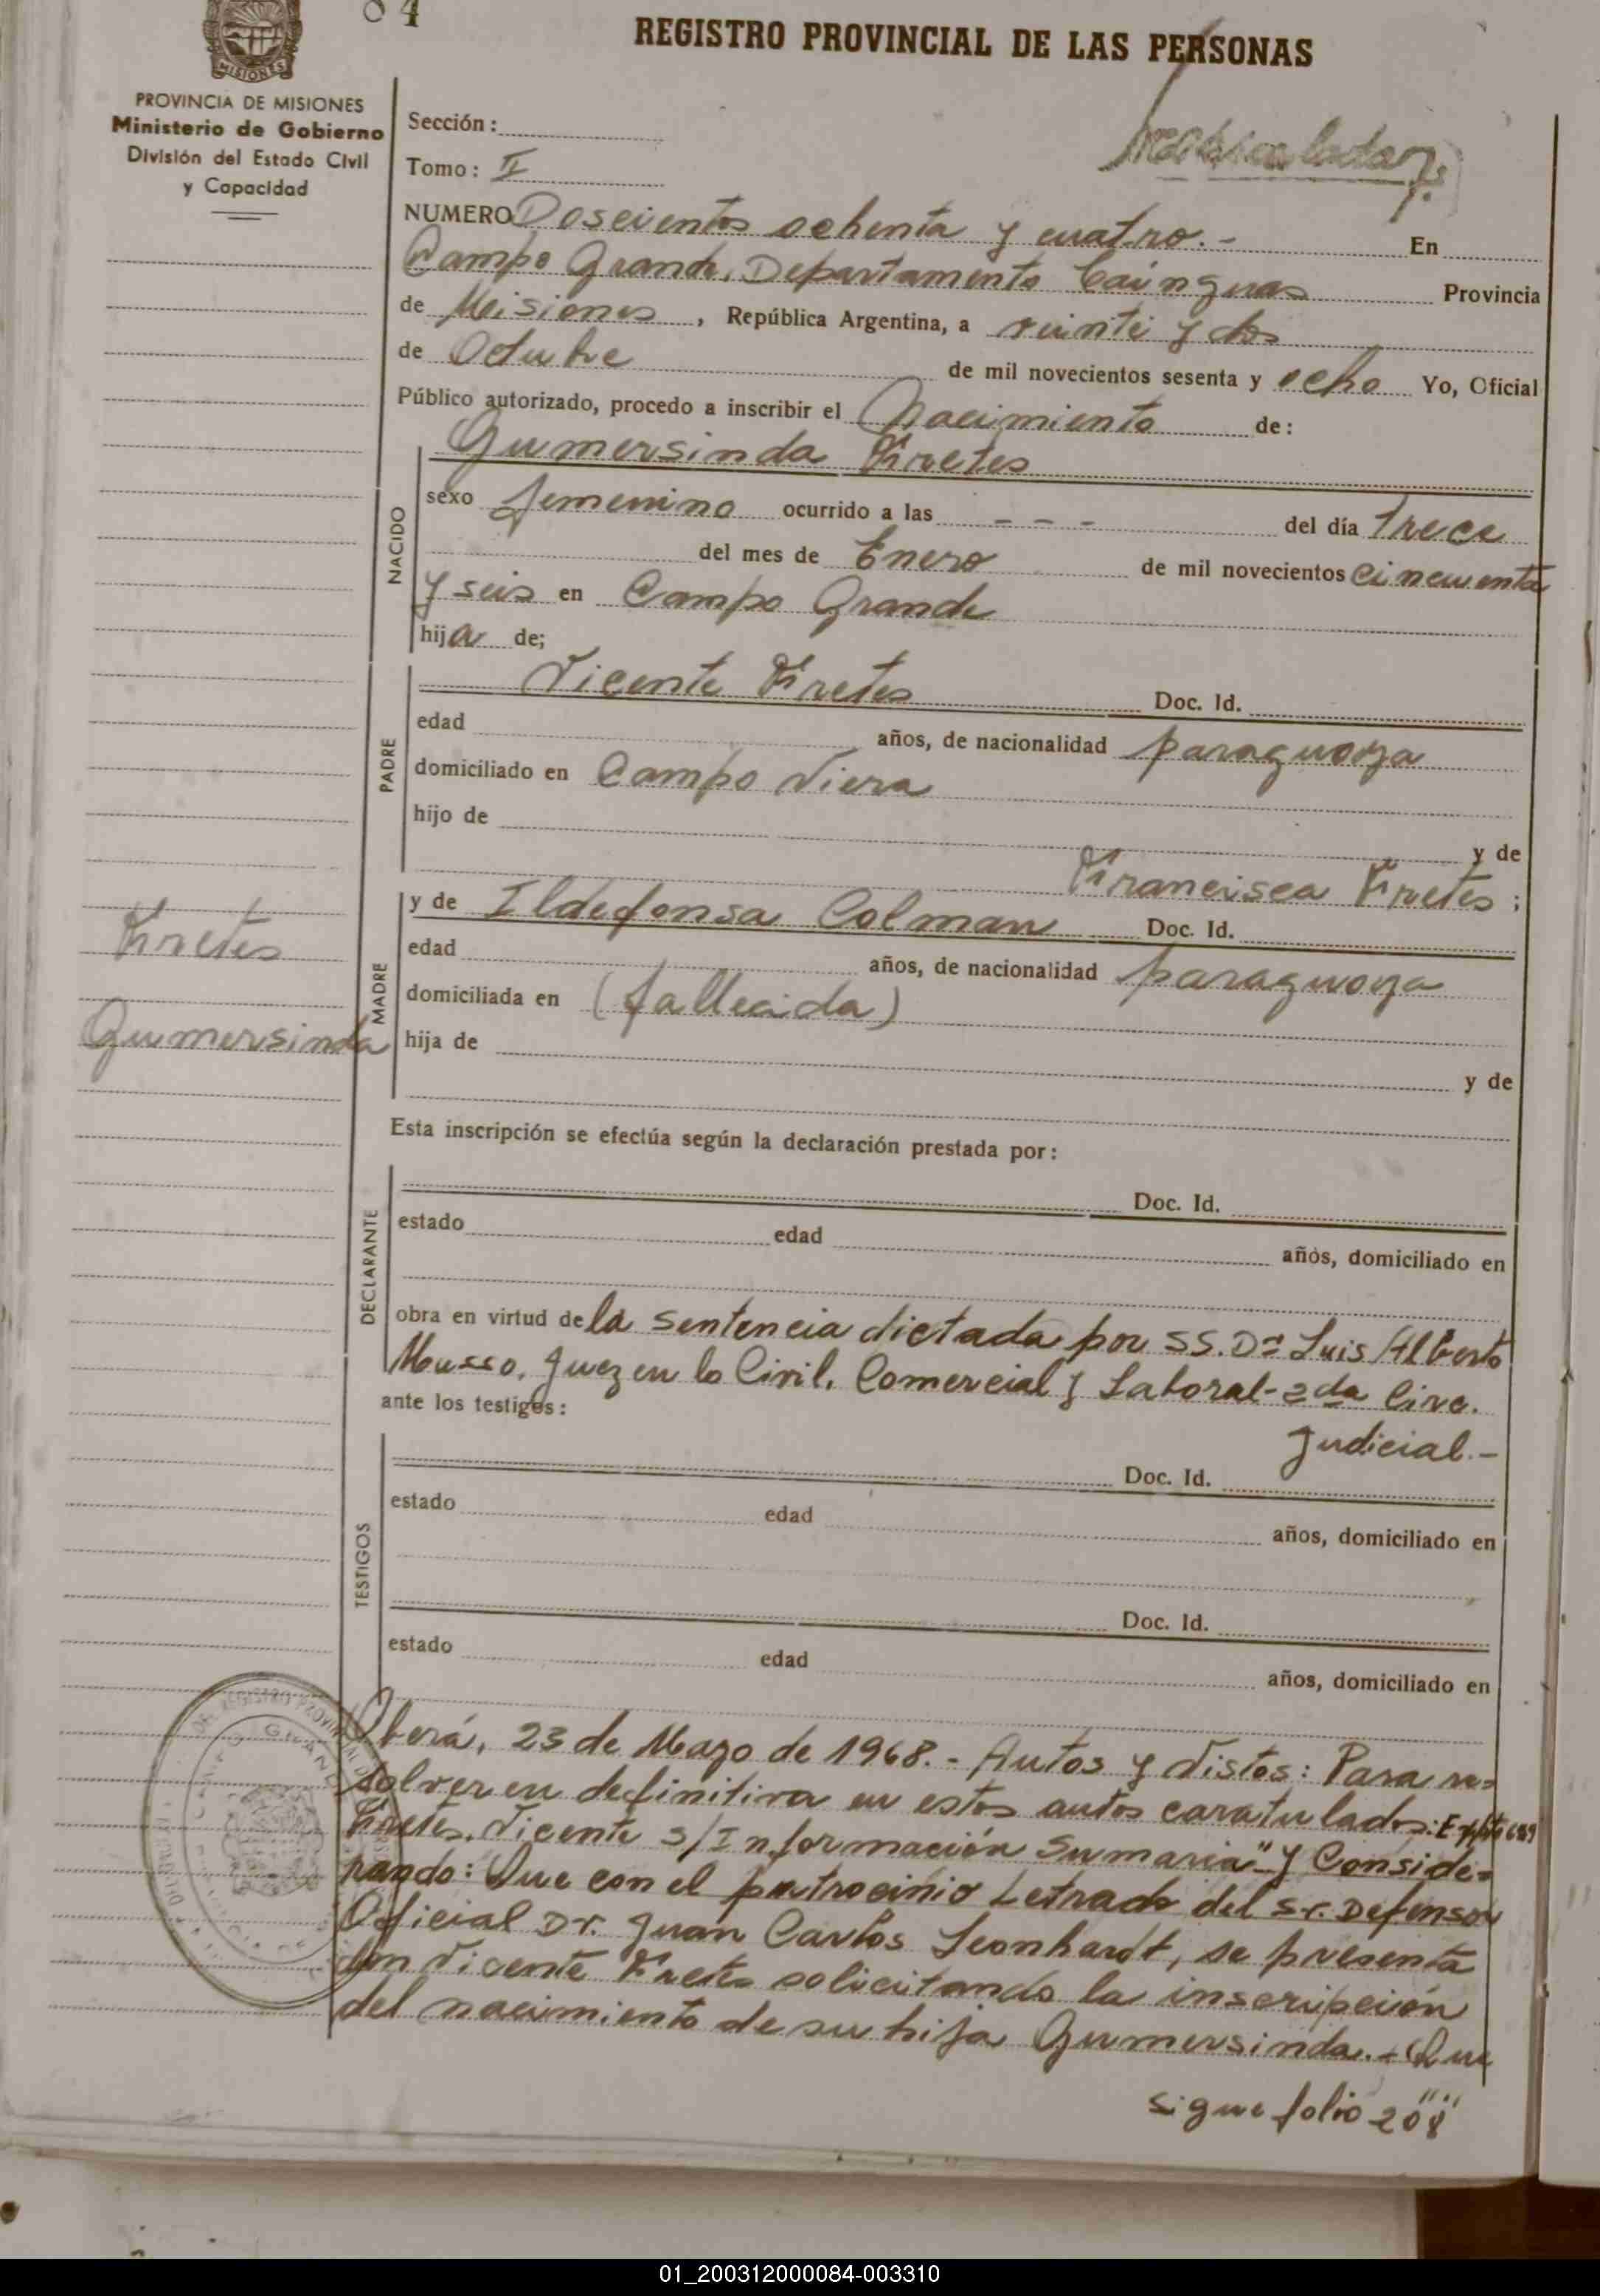 84
REGISTRO PROVINCIAL DE LAS PERSONAS
MISIONES
PROVINCIA DE MISIONES
Ministerio de Gobierno
División del Estado Civil
y Capacidad
Sección:
Tomo: II
NUMERO Doscientos ochenta y cuatro.- En
Campo Grande, Departamento Cainguas Provincia
de Misiones, República Argentina, a veinte y dos
de Octubre de mil novecientos sesenta y ocho Yo, Oficial
Público autorizado, procedo a inscribir el Nacimiento de:
Gumersinda Fretes
NACIDO
sexo femenino ocurrido a las - - - del día trece
del mes de Enero de mil novecientos cincuenta
y seis en Campo Grande
hija de;
PADRE
Vicente Fretes Doc. Id.
edad años, de nacionalidad paraguaya
domiciliado en Campo Viera
hijo de y de
Francisca Fretes;
Fretes
Gumersinda
MADRE
y de Ildefonsa Colman Doc. Id.
edad años, de nacionalidad paraguaya
domiciliada en (fallecida)
hija de y de
Esta inscripción se efectúa según la declaración prestada por:
DECLARANTE
Doc. Id.
estado edad años, domiciliado en
obra en virtud de la sentencia dictada por SS. Dr Luis Alberto
Musso, Juez en lo Civil, Comercial y Laboral-2da Circ.
Judicial.-
ante los testigos:
TESTIGOS
Doc. Id.
estado edad años, domiciliado en
Doc. Id.
estado edad años, domiciliado en
Oberá, 23 de Mayo de 1968.- Autos y Vistos: Para re=
solver en definitiva en estos autos caratulados:
Fretes, Vicente s/Información Sumaria" y Conside=
rando: Que con el patrocinio Letrado del Sr. Defensor
Oficial Dr. Juan Carlos Leonhardt, se presenta
don Vicente Fretes solicitando la inscripción
del nacimiento de su hija Gumersinda.- Que
sigue folio 208
01_200312000084-003310